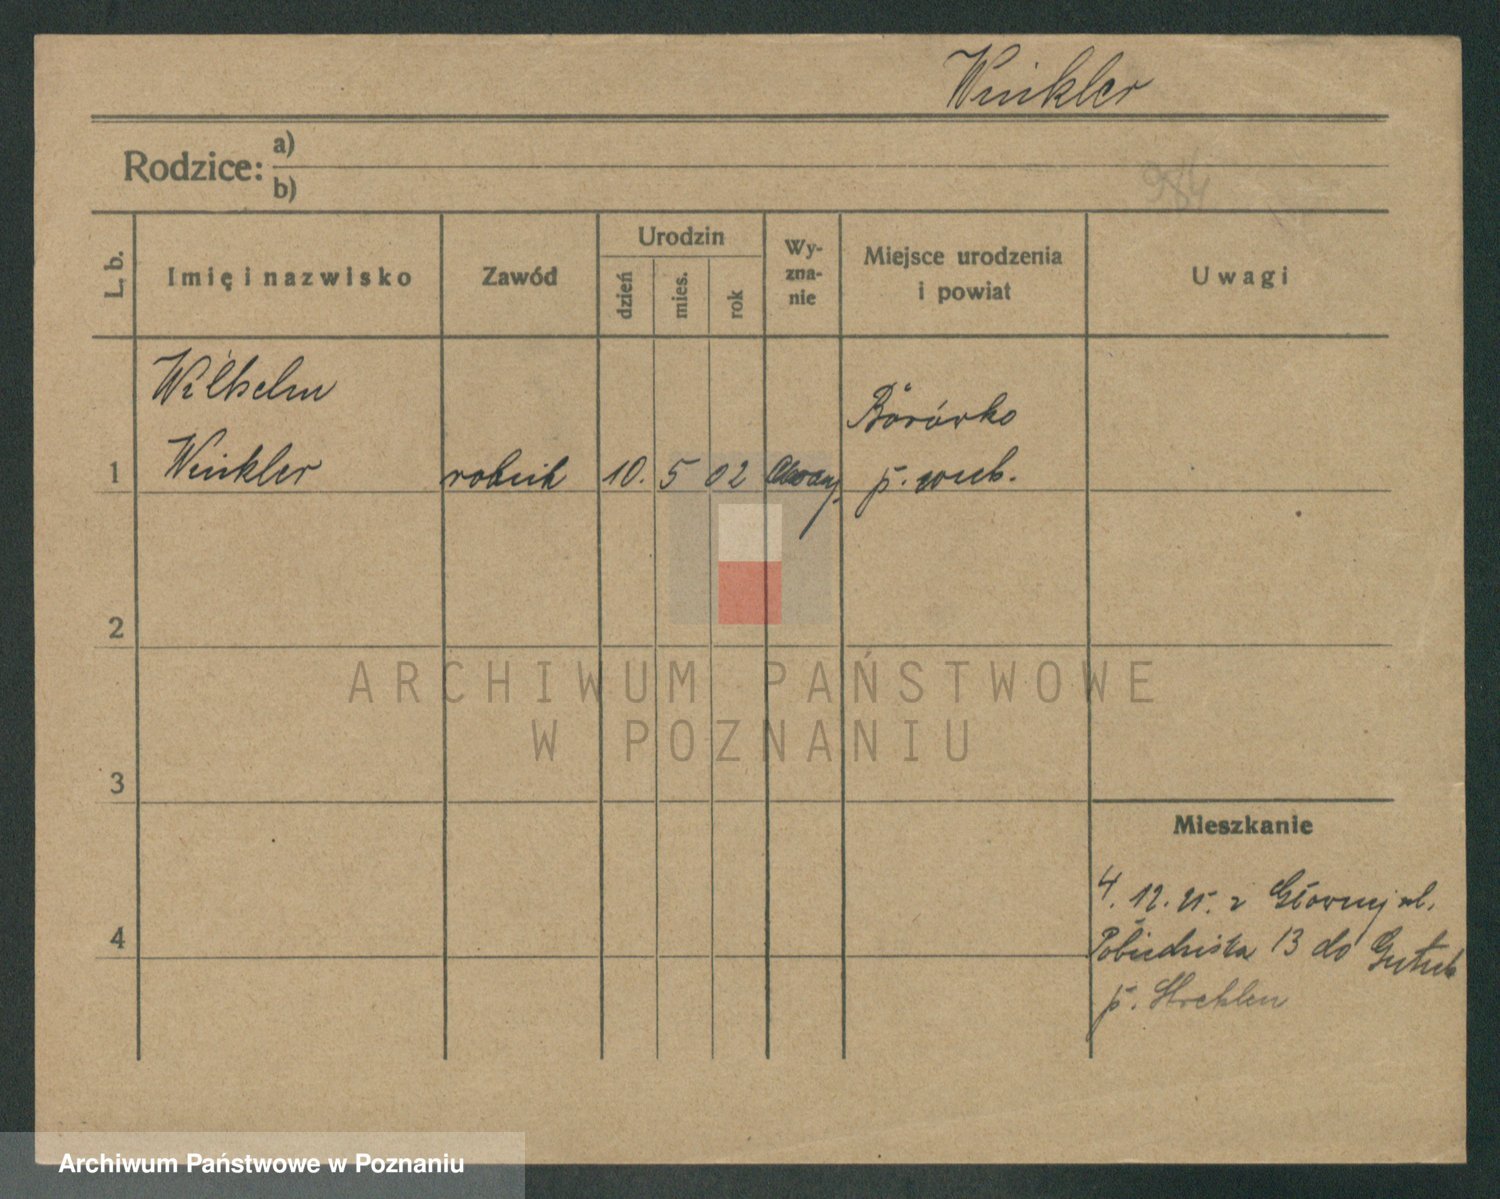 Winkler
Rodzice: a)
b)
984
L. b.
Imię i nazwisko
Zawód
Urodzin
dzień
mies.
rok
Wy-
zna-
nie
Miejsce urodzenia
i powiat
Uwagi
Wilhelm
Borówko
1 Winkler robnik 10. 5 02 p.
2
3
4
Mieszkanie
4. 12. 25. z Głównej ul.
Pobiedziska 13 do
p. Strehlen
ARCHIWUM PAŃSTWOWE
W POZNANIU
Archiwum Państwowe w Poznaniu